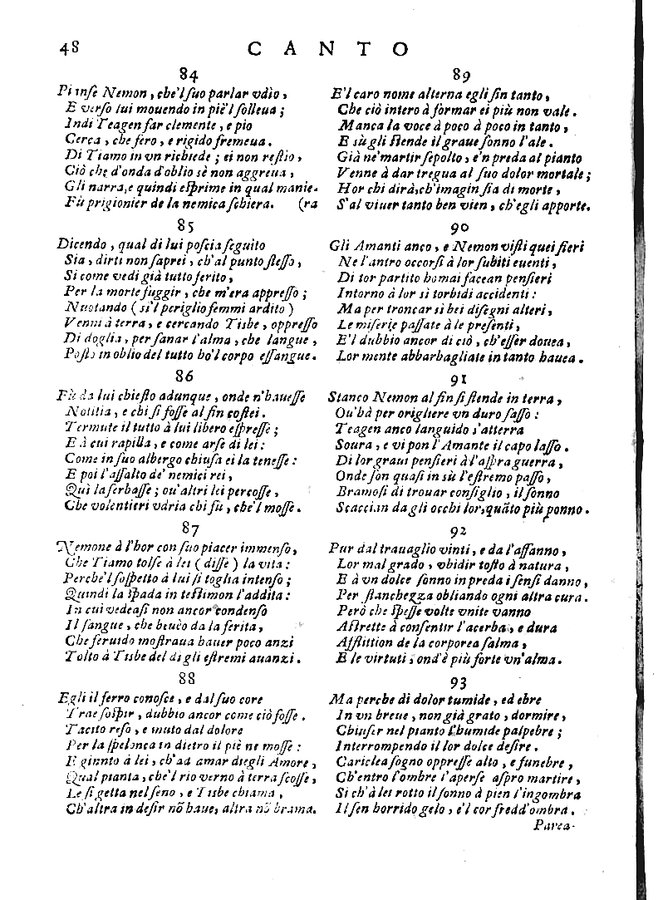 48 CANTO
84
Pianse Nemon, che'l suo parlar vdìo,
E verso lui mouendo in piè'l solleua;
Indi Teagen far clemente, e pio
Cerca, che fero, e rigido fremeua.
Di Tiamo in vn richiede; ei non restio,
Ciò che d'onda d'oblio sè non aggreua,
Gli narra, e quindi esprime in qual manie-
Fù prigionier de la nemica schiera. (ra
85
Dicendo, qual di lui poscia seguito
Sia, dirti non saprei, ch'al punto stesso,
Sì come vedi già tutto ferito,
Per la morte fuggir, che m'era appresso;
Nuotando (sì'l periglio femmi ardito)
Venni à terra, e cercando Tisbe, oppresso
Di doglia, per sanar l'alma, che langue,
Posto in oblio del tutto hò'l corpo essangue.
86
Fù da lui chiesto adunque, onde n'hauesse
Notitia, e chi si fosse al fin costei.
Termute il tutto à lui libero espresse;
E à cui rapilla, e come arse di lei:
Come in suo albergo chiusa ei la tenesse:
E poi l'assalto de' nemici rei,
Quì la serbasse; ou'altri lei percosse,
Che volentieri vdria chi fu, che'l mosse.
87
Nemone à l'hor con suo piacer immenso,
Che Tiamo tolse à lei (disse) la vita:
Perche'l sospetto à lui si toglia intenso;
Quindi la spada in testimon l'addita:
In cui vedeasi non ancor condenso
Il sangue, che beuèo da la ferita,
Che feruido mostraua hauer poco anzi
Tolto à Tisbe del dì gli estremi auanzi.
88
Egli il ferro conosce, e dal suo core
Trae sospir, dubbio ancor come ciò fosse.
Tacito reso, e muto dal dolore
Per la spelonca in dietro il piè ne mosse:
E giunto à lei, ch'ad amar diegli Amore,
Qual pianta, che'l rio verno à terra scosse,
Le si getta nel seno, e Tisbe chiama,
Ch'altra in desir nõ haue, altra nõ brama.
89
E'l caro nome alterna egli sin tanto,
Che ciò intero à formar ei più non vale.
Manca la voce à poco à poco in tanto,
E sù gli stende il graue sonno l'ale.
Già ne' martir sepolto, e'n preda al pianto
Venne à dar tregua al suo dolor mortale;
Hor chi dirà, ch'imagin sia di morte,
S'al viuer tanto ben vien, ch'egli apporte.
90
Gli Amanti anco, e Nemon visti quei fieri
Ne l'antro occorsi à lor subiti euenti,
Di tor partito homai facean pensieri
Intorno à lor sì torbidi accidenti:
Ma per troncar sì bei disegni alteri,
Le miserie passate à le presenti,
E'l dubbio ancor di ciò, ch'esser douea,
Lor mente abbarbagliate in tanto hauea.
91
Stanco Nemon al fin si stende in terra,
Ou'hà per origliere vn duro sasso:
Teagen anco languido s'atterra
Soura, e vi pon l'Amante il capo lasso.
Di lor graui pensieri à l'aspra guerra,
Onde son quasi in sù l'estremo passo,
Bramosi di trouar consiglio, il sonno
Scaccian da gli occhi lor, quãto più ponno.
92
Pur dal trauaglio vinti, e da l'affanno,
Lor mal grado, vbidir tosto à natura,
E à vn dolce sonno in preda i sensi danno,
Per stanchezza obliando ogni altra cura.
Però che spesse volte vnite vanno
Astrette à consentir l'acerba, e dura
Afflittion de la corporea salma,
E le virtuti, ond'è più forte vn'alma.
93
Ma perche di dolor tumide, ed ebre
In vn breue, non già grato, dormire,
Chiuser nel pianto l'humide palpebre;
Interrompendo il lor dolce desire.
Cariclea sogno oppresse alto, e funebre,
Ch'entro l'ombre l'aperse aspro martire,
Sì ch'à lei rotto il sonno à pien l'ingombra
Il sen horrido gelo, e'l cor fredd'ombra.
Parea-